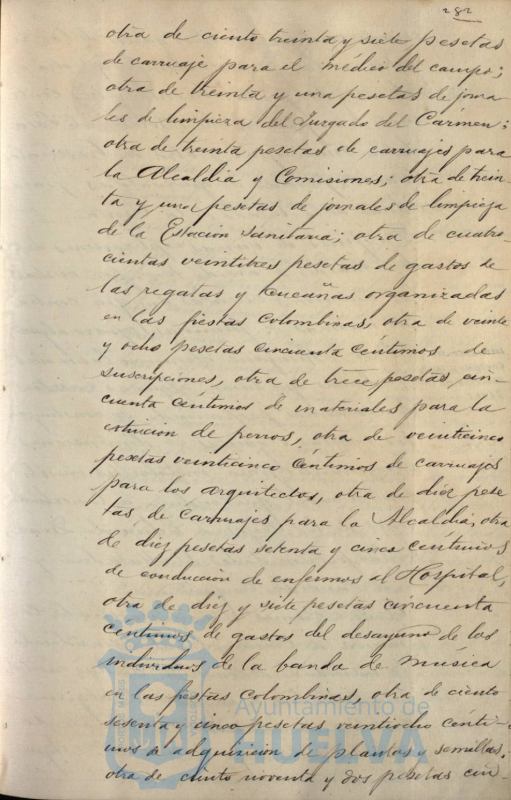 282
otra de ciento treinta y siete pesetas
de carruaje para el médico del campo;
otra de treinta y una pesetas de jorna
les de limpieza del Juzgado del Carmen;
otra de treinta pesetas de carruajes para
la Alcaldia y Comisiones; otra de trein
ta y una pesetas de jornales de limpieza
de la Estacion Sanitaria; otra de cuatro-
cientas veintitres pesetas de gastos de
las regatas y cucañas organizadas
en las fiestas Colombinas, otra de veinte
y ocho pesetas cincuenta céntimos de
suscripciones, otra de trece pesetas cin-
cuenta céntimos de materiales para la
de perros, otra de veinticinco
pesetas veinticinco céntimos de carruajes
para los arquitectos, otra de diez pese
tas de carruajes para la Alcaldia, otra
de diez pesetas setenta y cinco céntimos
de conduccion de enfermos al Hospital,
otra de diez y siete pesetas cincuenta
centimos de gastos del desayuno de los
individuos de la banda de música
en las fiestas Colombinas, otra de ciento
sesenta y cinco pesetas veintiocho cénti-
mos de adquisicion de plantas y semillas,
otra de ciento noventa y dos pesetas cin-
Ayuntamiento de
HUELVA